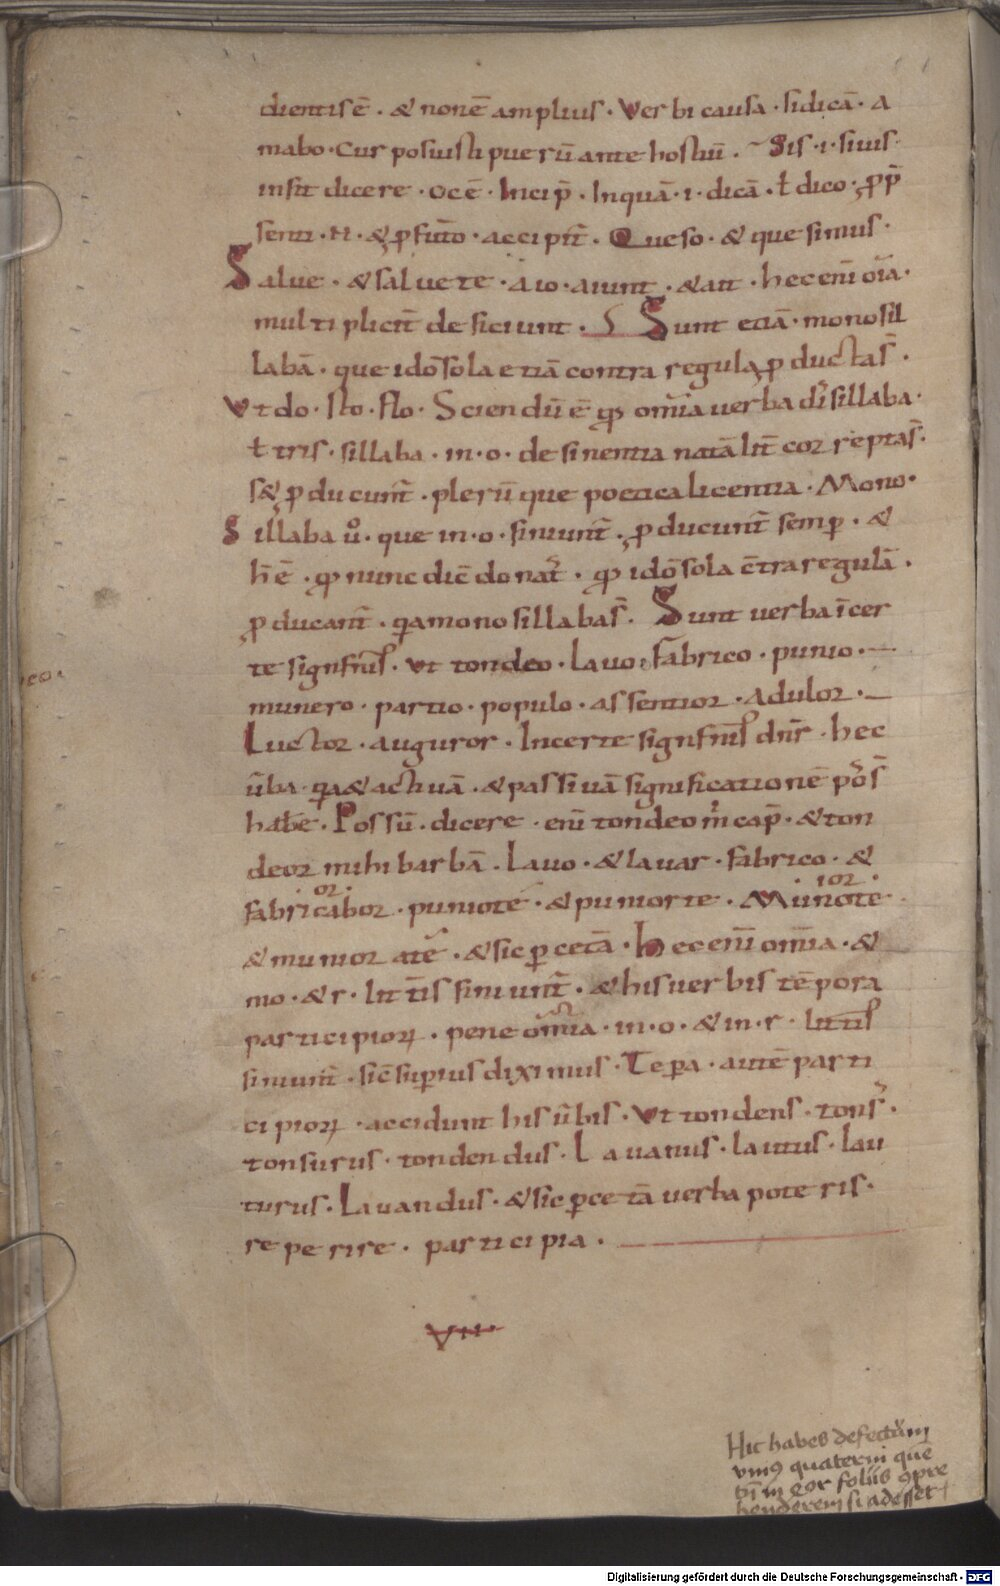 dientis ē · & non ē amplius · Verbi causa · si dicā · a
mabo · Cur posuisti puerū ante hostiū . Sis · i · siuis ·
insit dicere · oc ē · Incip̄ · Inquā · i · dicā · ł dico · p̄p̄
senti · & p futo · accipit̄ . Queso · & quesimus ·
Salue · & saluete · aio · aiunt · & ait · hec eni om̄a ·
multiplicit̄ deficiunt . Sunt etiā · monosil
labā · que idō sola etiā contra regulā p ductas̄ .
Vt do · sto · flo · Sciendū ē qđ om̄ia uerba disillaba ·
ł trisillaba · in · o · desinentia natā lit̄ correptas̄ ·
s& p ducunt̄ · plerūque poetica licentia · Mono ·
Sillaba ů · que in · o · finiunt̄ · p ducunt̄ semp · &
h̄ ē · qđ nunc diē donat̄ · qđ idō sola c̄tra regulā .
p ducant̄ · qa monosillabas̄ . Sunt uerba īcer
te signf̄nis · Vt tondeo · lauo · fabrico · punio · —
munero · partio · populo · assentior · adulor · —
Luctor · auguror · Incerte signf̄nis dn̄r · hec
ūba · qa & actiuā · & passiuā significationē pos̄
habe · Possū · dicere · eni tondeo m̄ cap̄ · & ton
deor mihi barbā · Lauo · & lauar · fabrico · &
or · ior ·
fabricabor · punio te · & punior te · Munio te
& munior a te · & sic p cetā · Hec eni om̄ia · &
in o · & r · lit̄tis finiunt̄ · & his uerbis tēpora
participioꝝ · pene om̄ia · in · o · & in · r · litt̄is
finiunt̄ · sic̄ superius diximus · Tepa · autē parti
cipioꝝ · accidunt his ūbis · Vt tondens · tons̾ ·
tonsurus · tondendus · Lauans · lautus · lau
turus · Lauandus · & sic p cetā uerba poteris ·
reperire · participia ·
VII
Hic habes defectūm
vniꝰ quaterni quē
tm̄ in eor foliis ꝯpre
henderem si adesset
Digitalisierung gefördert durch die Deutsche Forschungsgemeinschaft · DFG